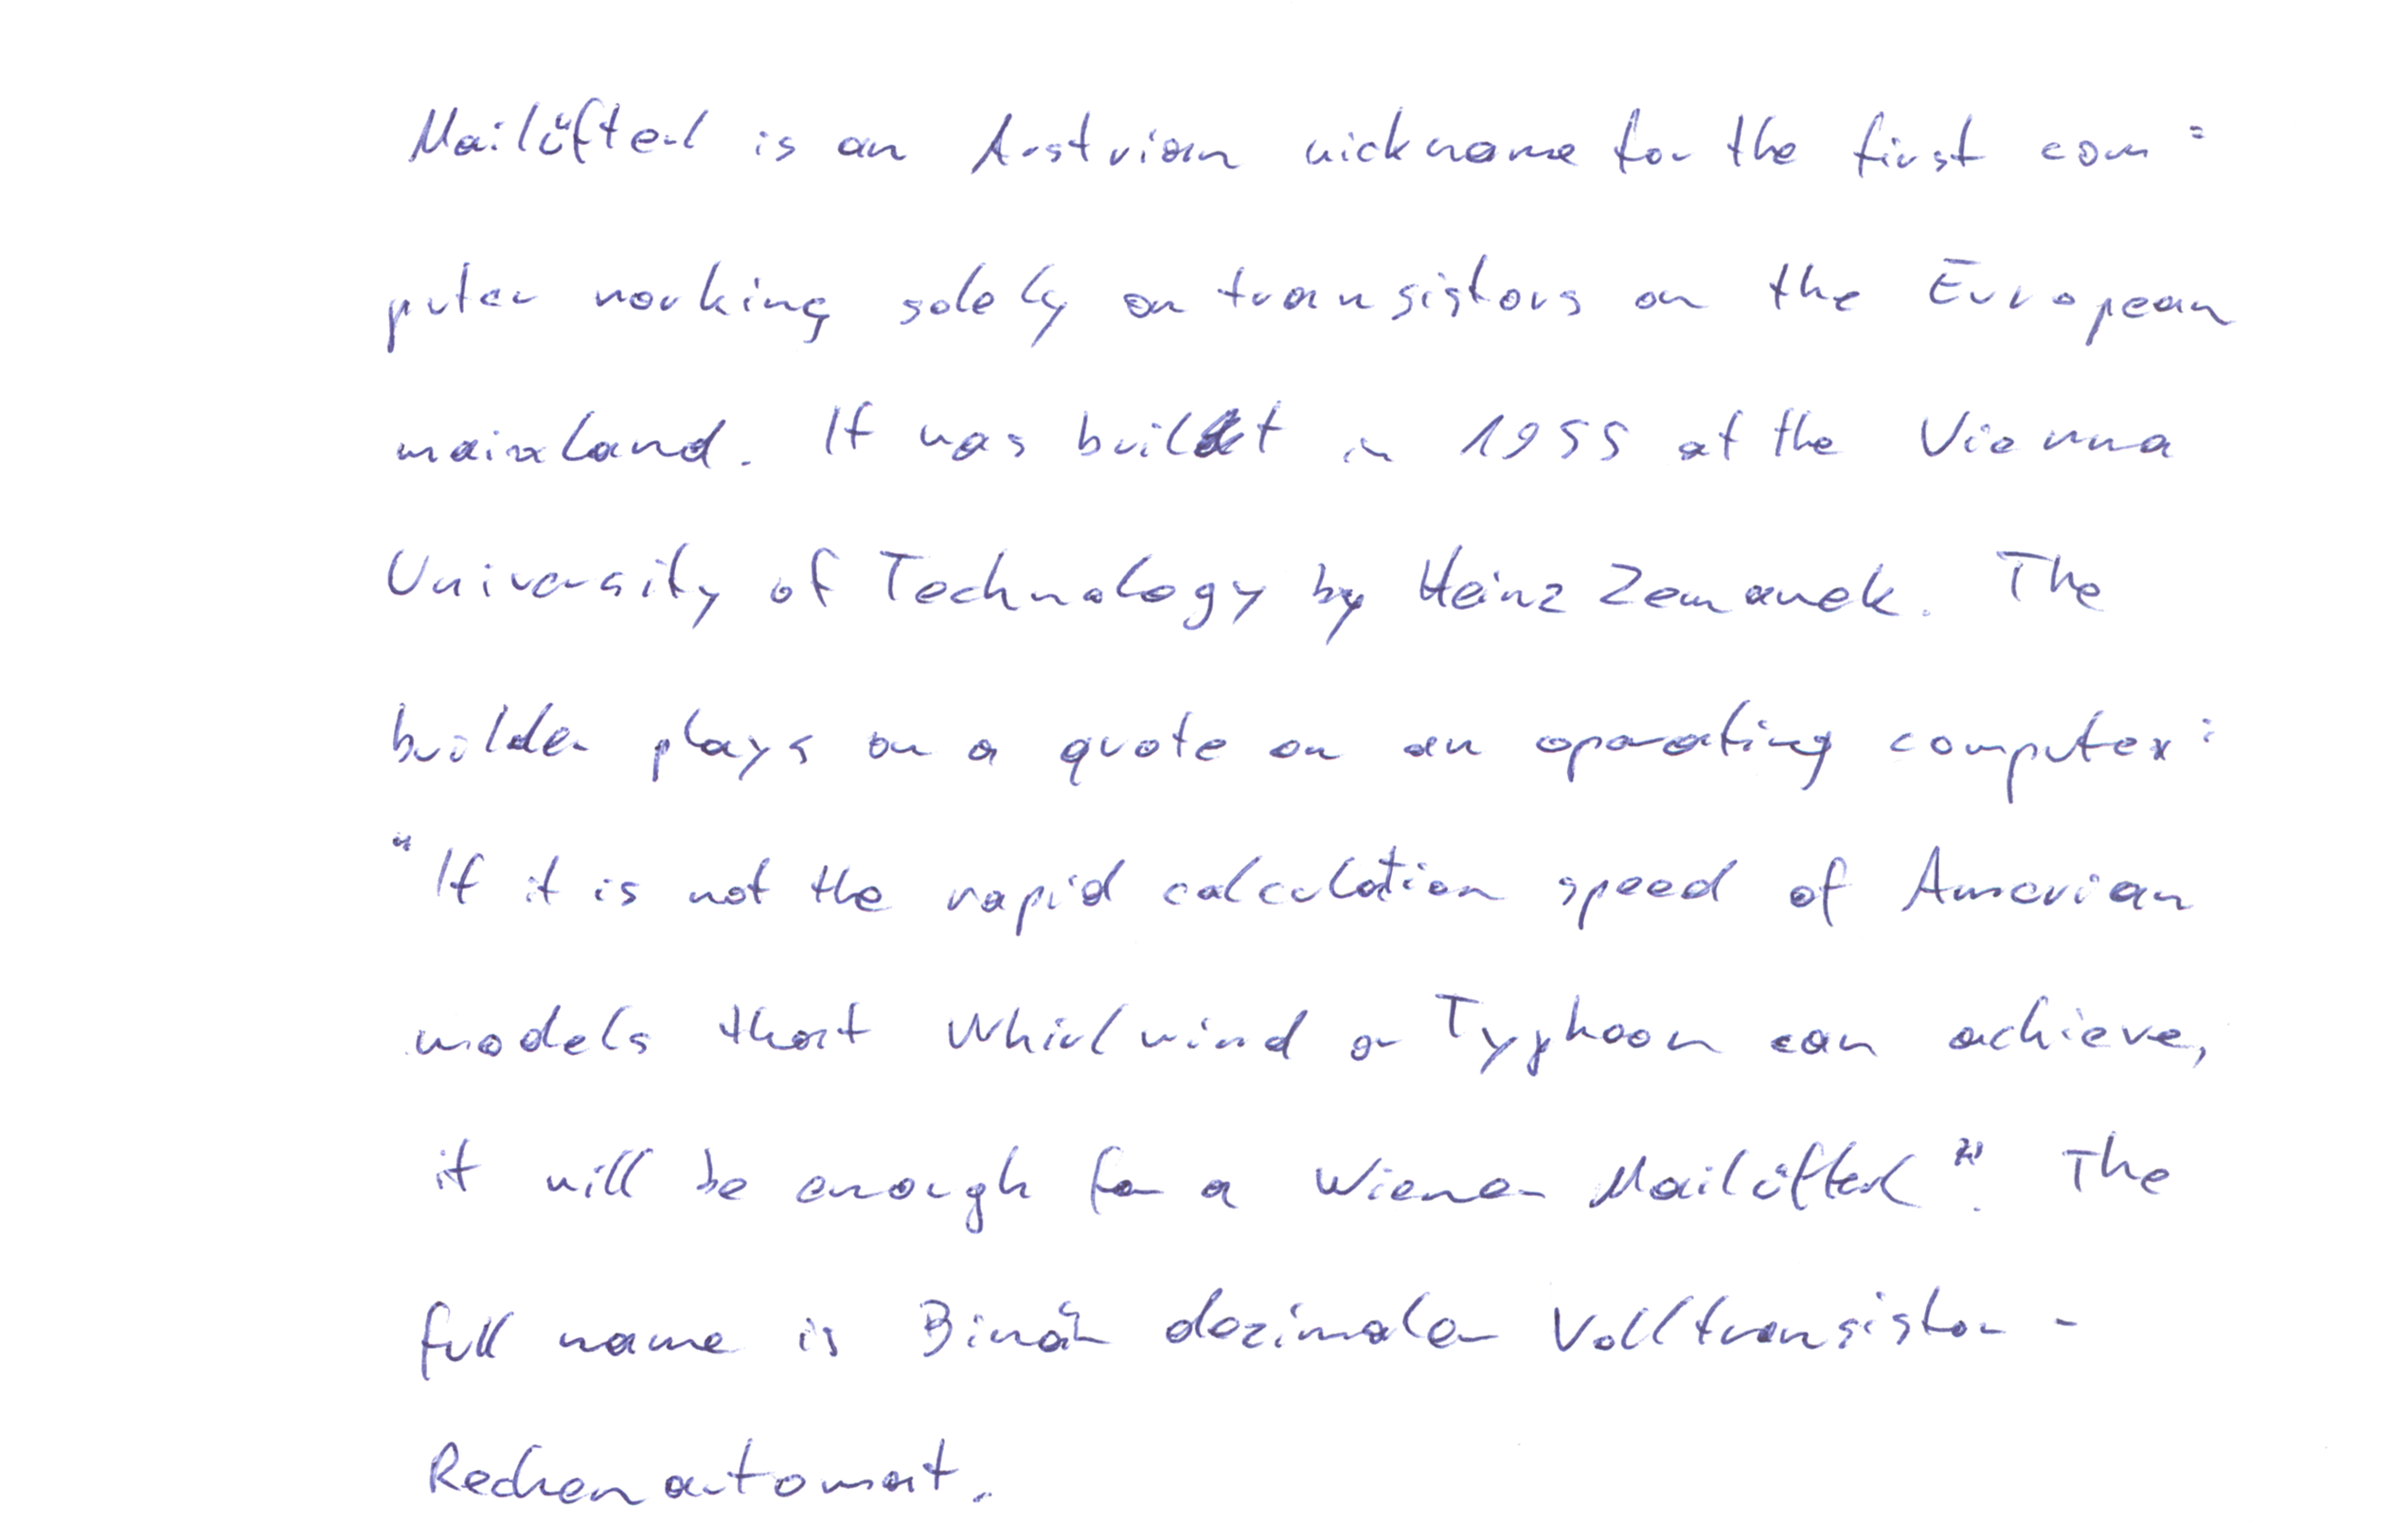 Mailüfterl is an Austrian nickname for the first com=
puter working solely on transistors on the European
mainland. It was built in 1955 at the Vienna
University of Technology by Heinz Zemanek. The
builder plays on a quote on an operating computer:
"If it is not the rapid calculation speed of Amerian
models that Whirlwind or Typhoon can achieve,
it will be enough for a Wiener Mailüfterl". The
full name is Binär dezimaler Volltransistor-
Rechenautomat.